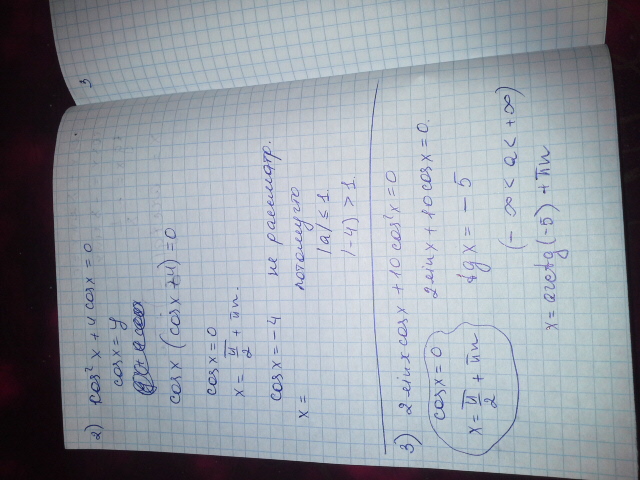 3
2) cos²x + 4 cosx = 0
cosx = y
cosx (cosx + 4) = 0
cosx = 0
x = π/2 + πn.
cosx = -4 не рассматр.
x = потому что
|a| ≤ 1
|-4| > 1.
3) 2 sinx cosx + 10 cos²x = 0
cosx = 0 2 sinx + 10 cosx = 0.
x = π/2 + πn tgx = -5
(-∞ < a < +∞)
x = arctg(-5) + πn